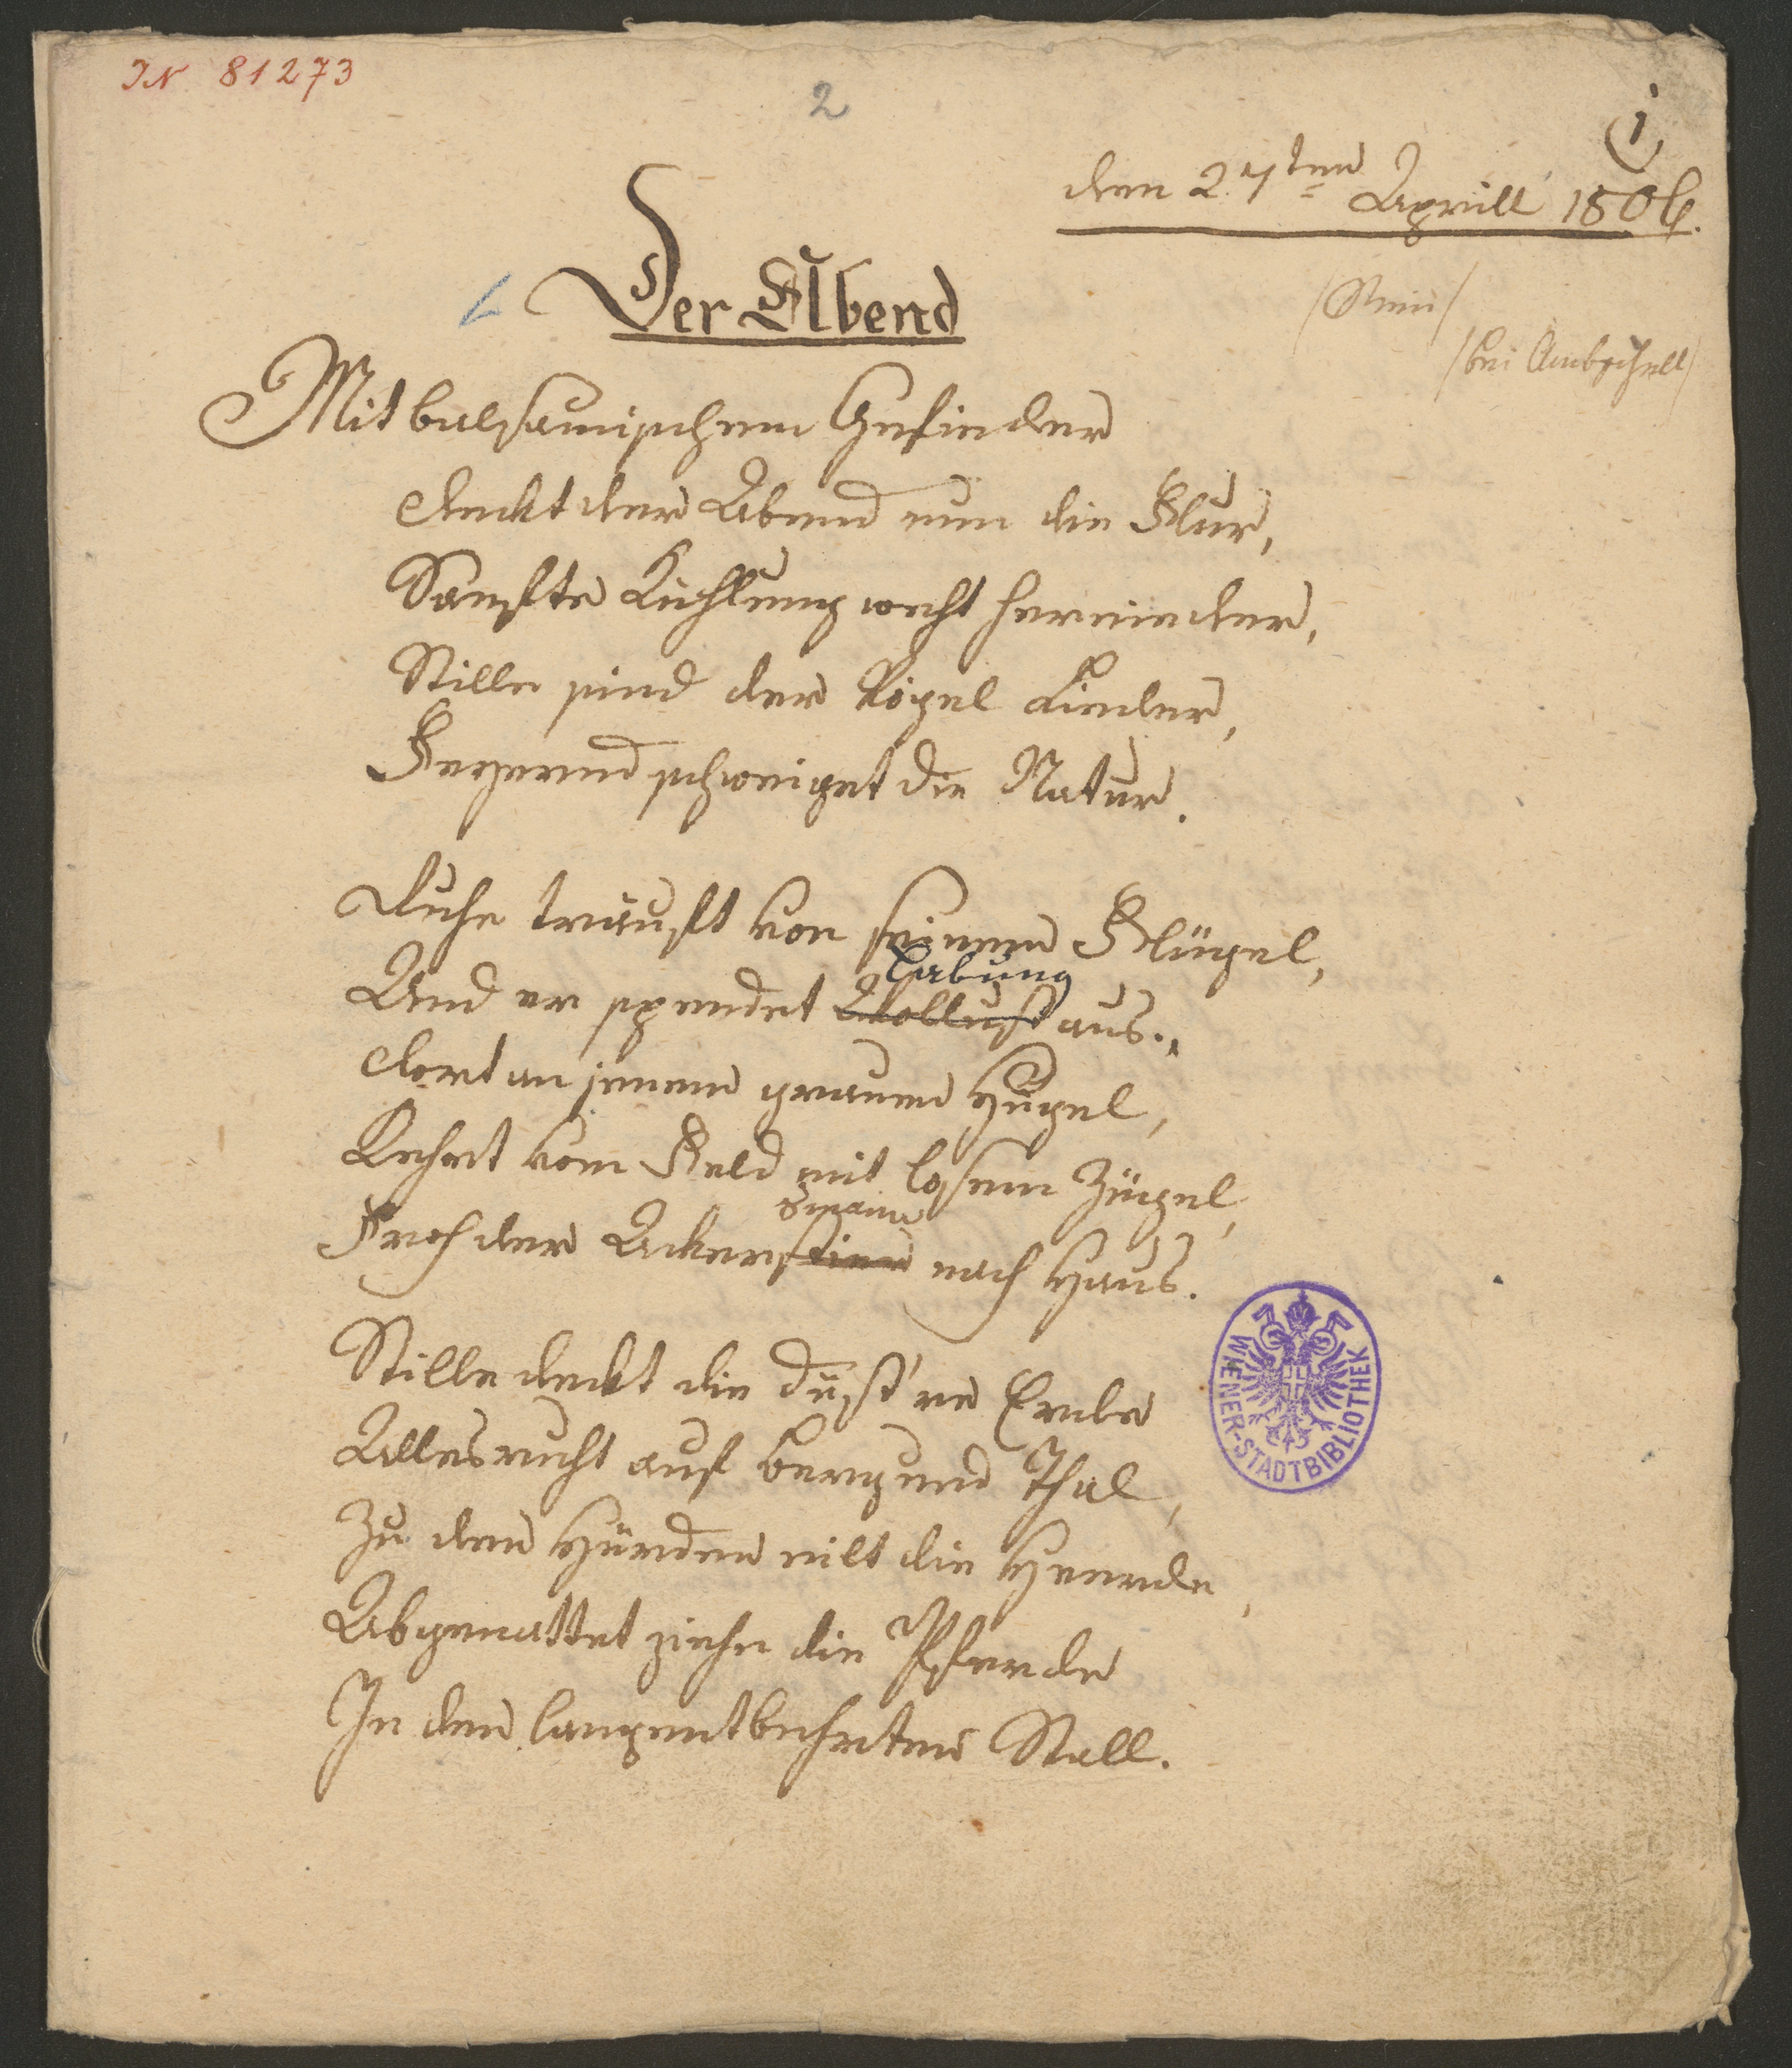 IN 81273
2
1
den 27ten Aprill 1806.
Der Abend
/bei Ambschell/
Mit balsamischem Gefieder
deckt der Abend nun die Flur,
Sanfte Kühlung weht hernieder,
Stille sind der Vögel Lieder,
Feyernd schweiget die Natur.
Ruhe träuft von seinem Flügel,
Labung
Und er spendet Wollust aus.,
dort an jenem grauen Hügel,
Kehrt vom Feld mit losem Zügel,
smann
Froh der Ackerstier nach Haus.
Stille deckt die düst're Erde
Alles ruht auf Berg und Thal,
Zu den Hürden eilt die Heerde,
Abgemattet ziehn die Pferde
In den langentbehrten Stall.
WIENER-STADTBIBLIOTHEK